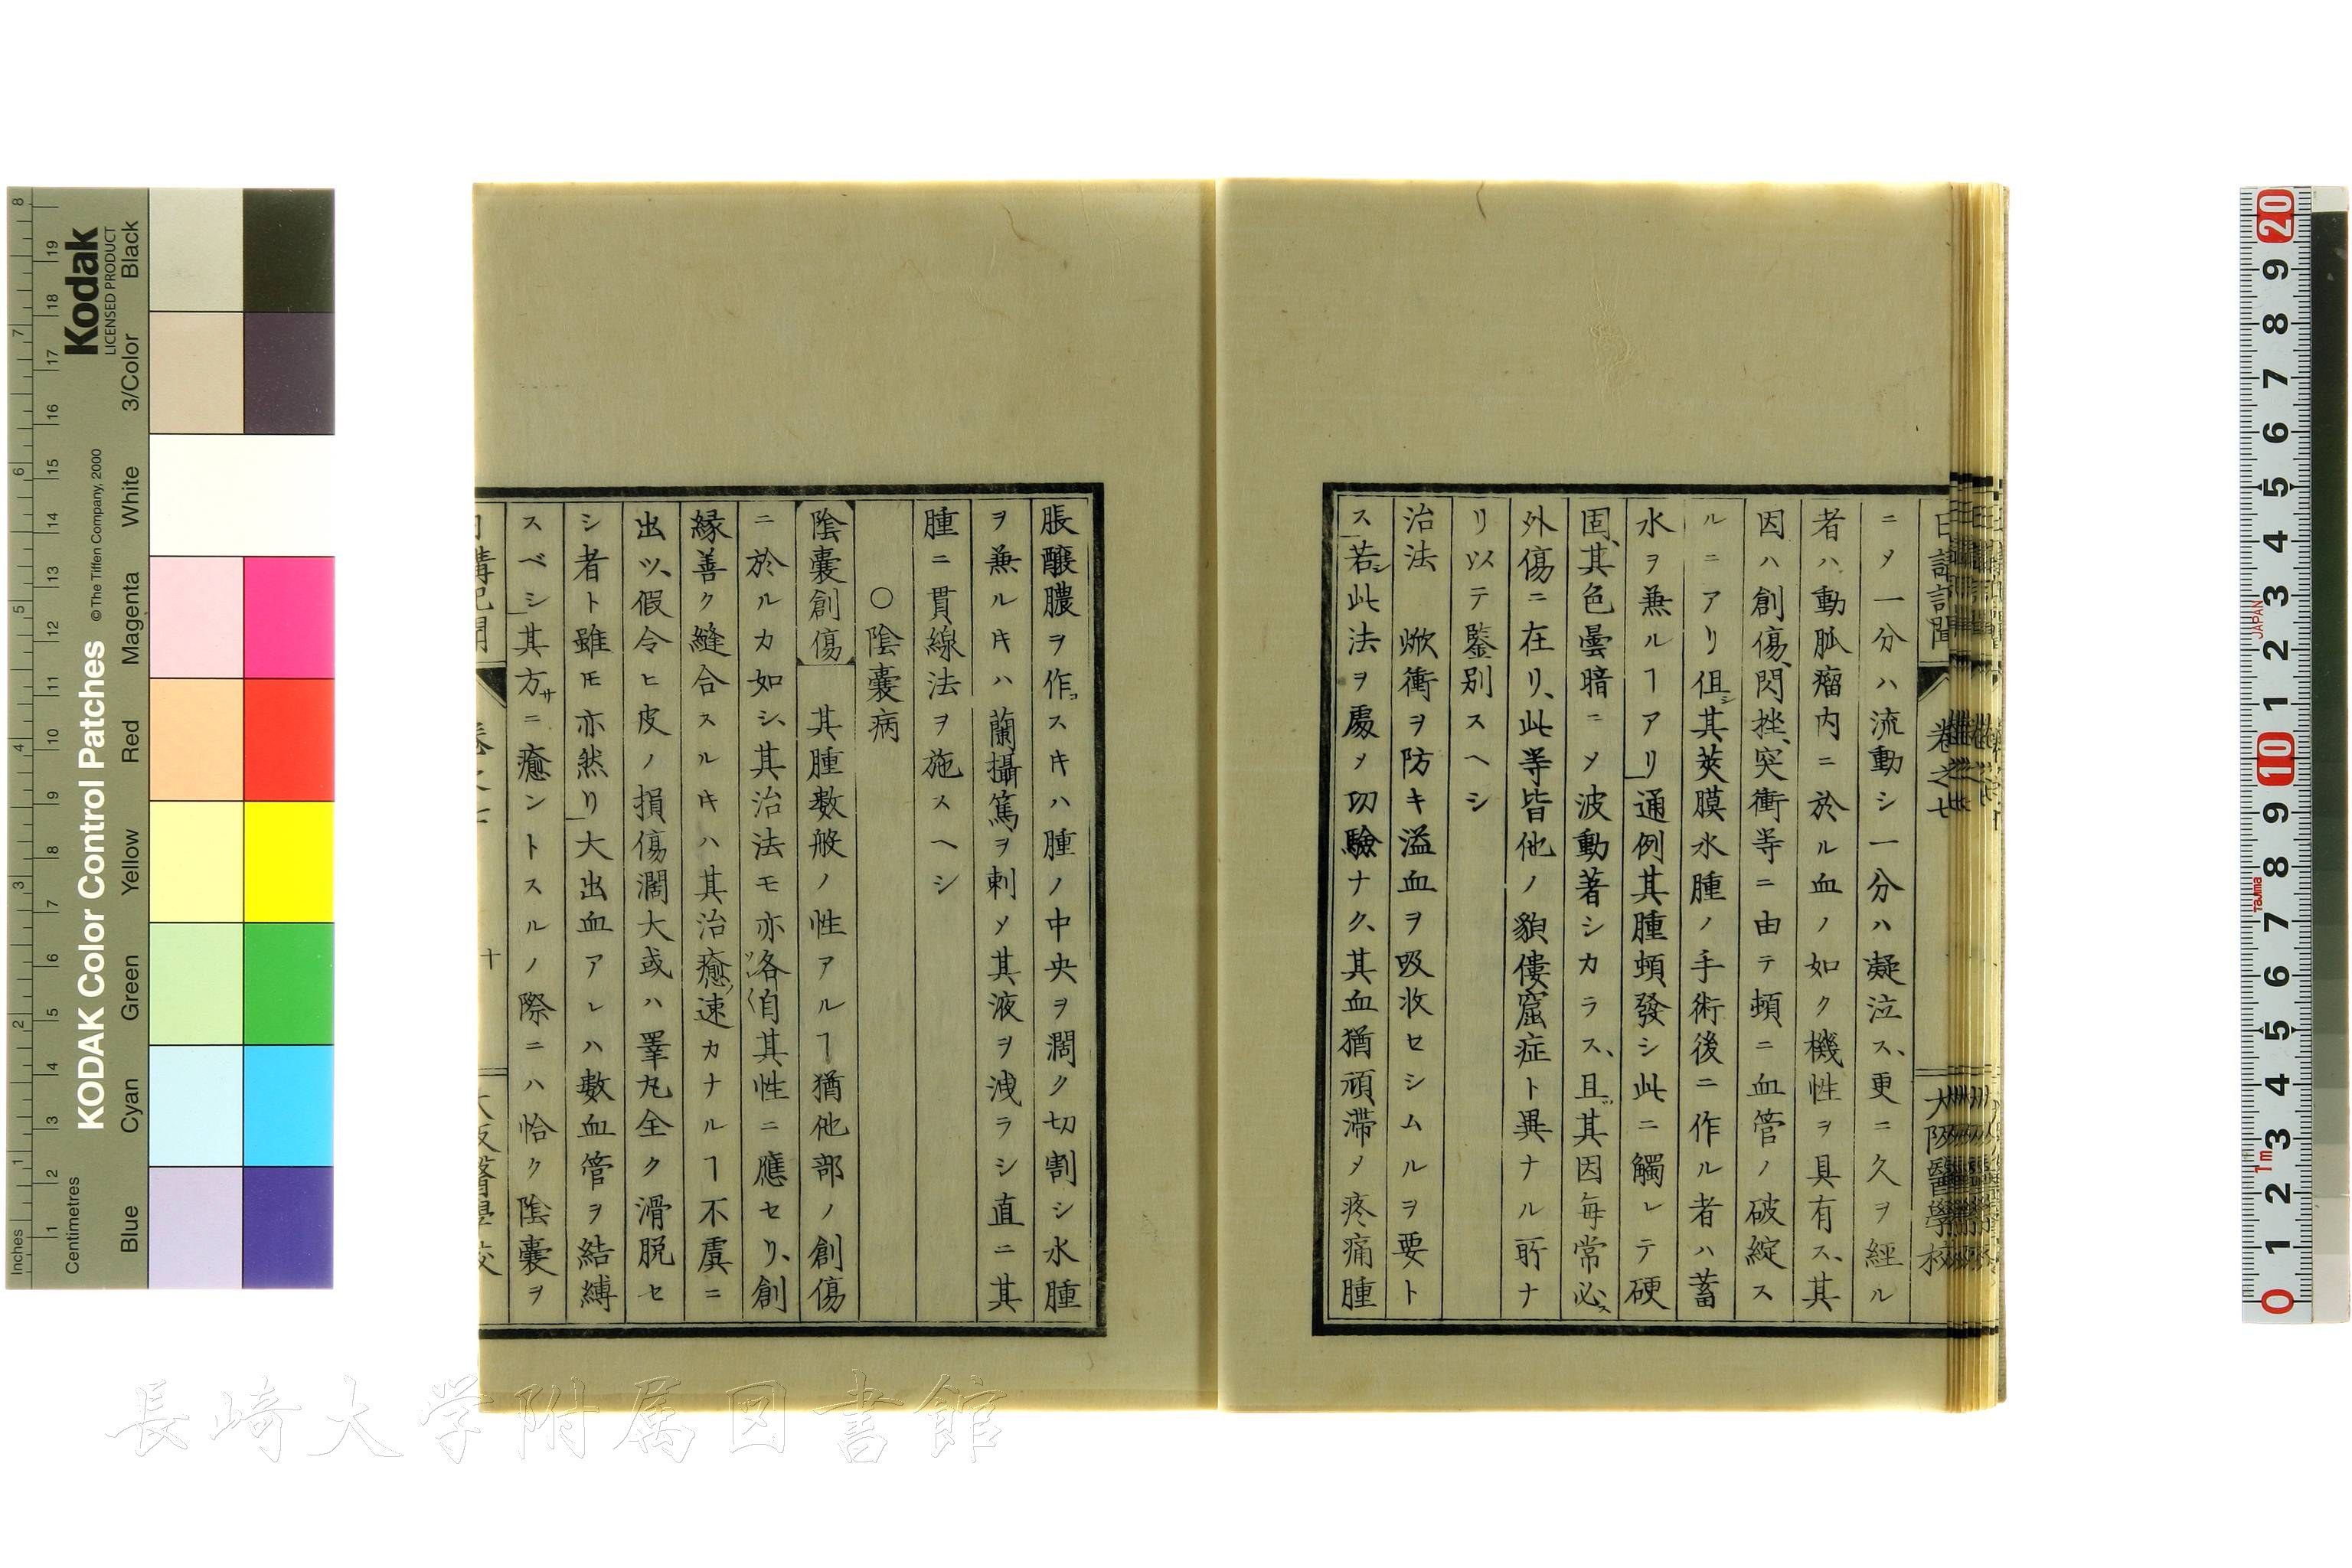 日講記聞 卷之七 大阪醫學校
ニメ一分ハ流動シ一分ハ凝泣ス、更ニ久ヲ經ル
者ハ動脈瘤内ニ於ル血ノ如ク機性ヲ具有ス、其
因ハ創傷、閃挫、突衝等ニ由テ頓ニ血管ノ破綻ス
ルニアリ但シ其莢膜水腫ノ手術後ニ作ル者ハ蓄
水ヲ兼ルヿアリ」通例其腫頓發シ此ニ觸レテ硬
固、其色曇暗ニメ波動著シカラス、且ツ其因毎常必ス
外傷ニ在リ、此等皆他ノ貌僂窟症ト異ナル所ナ
リ以テ鑒別スヘシ
治法 焮衝ヲ防キ溢血ヲ吸收セシムルヲ要ト
ス」若シ此法ヲ處メ功驗ナク、其血猶頑滯メ疼痛腫
脹釀膿ヲ作コスキハ腫ノ中央ヲ濶ク切割シ水腫
ヲ兼ルキハ蘭攝篤ヲ刺メ其液ヲ洩ラシ直ニ其
腫ニ貫線法ヲ施スヘシ
○陰囊病
陰囊創傷 其腫數般ノ性アルヿ猶他部ノ創傷
ニ於ルカ如シ、其治法モ亦各自其性ニ應セリ、創
縁善ク縫合スルキハ其治癒速カナルヿ不虞ニ
出ツ、假令ヒ皮ノ損傷濶大或ハ睪丸全ク滑脱セ
シ者ト雖モ亦然リ」大出血アレハ數血管ヲ結縛
スベシ」其方サニ癒ントスルノ際ニハ恰ク陰囊ヲ
日講記聞 卷之七 十 大阪醫學校
長崎大学附属図書館
KODAK Color Control Patches
© The Tiffen Company, 2000
Kodak
LICENSED PRODUCT
Inches
Centimetres
Blue Cyan Green Yellow Red Magenta White 3/Color Black
JAPAN
Tajima
1m